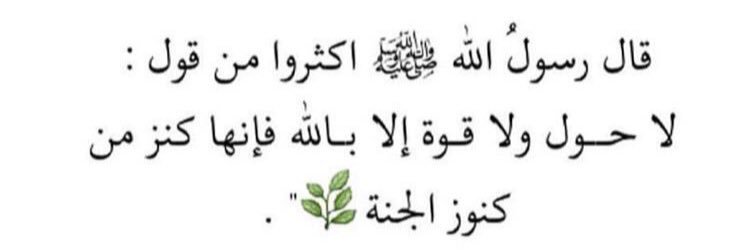 قال رسولُ الله ﷺ اكثروا من قول :
لا حــول ولا قــوة إلا بــالله فإنها كنز من
كنوز الجنة 🌿" .